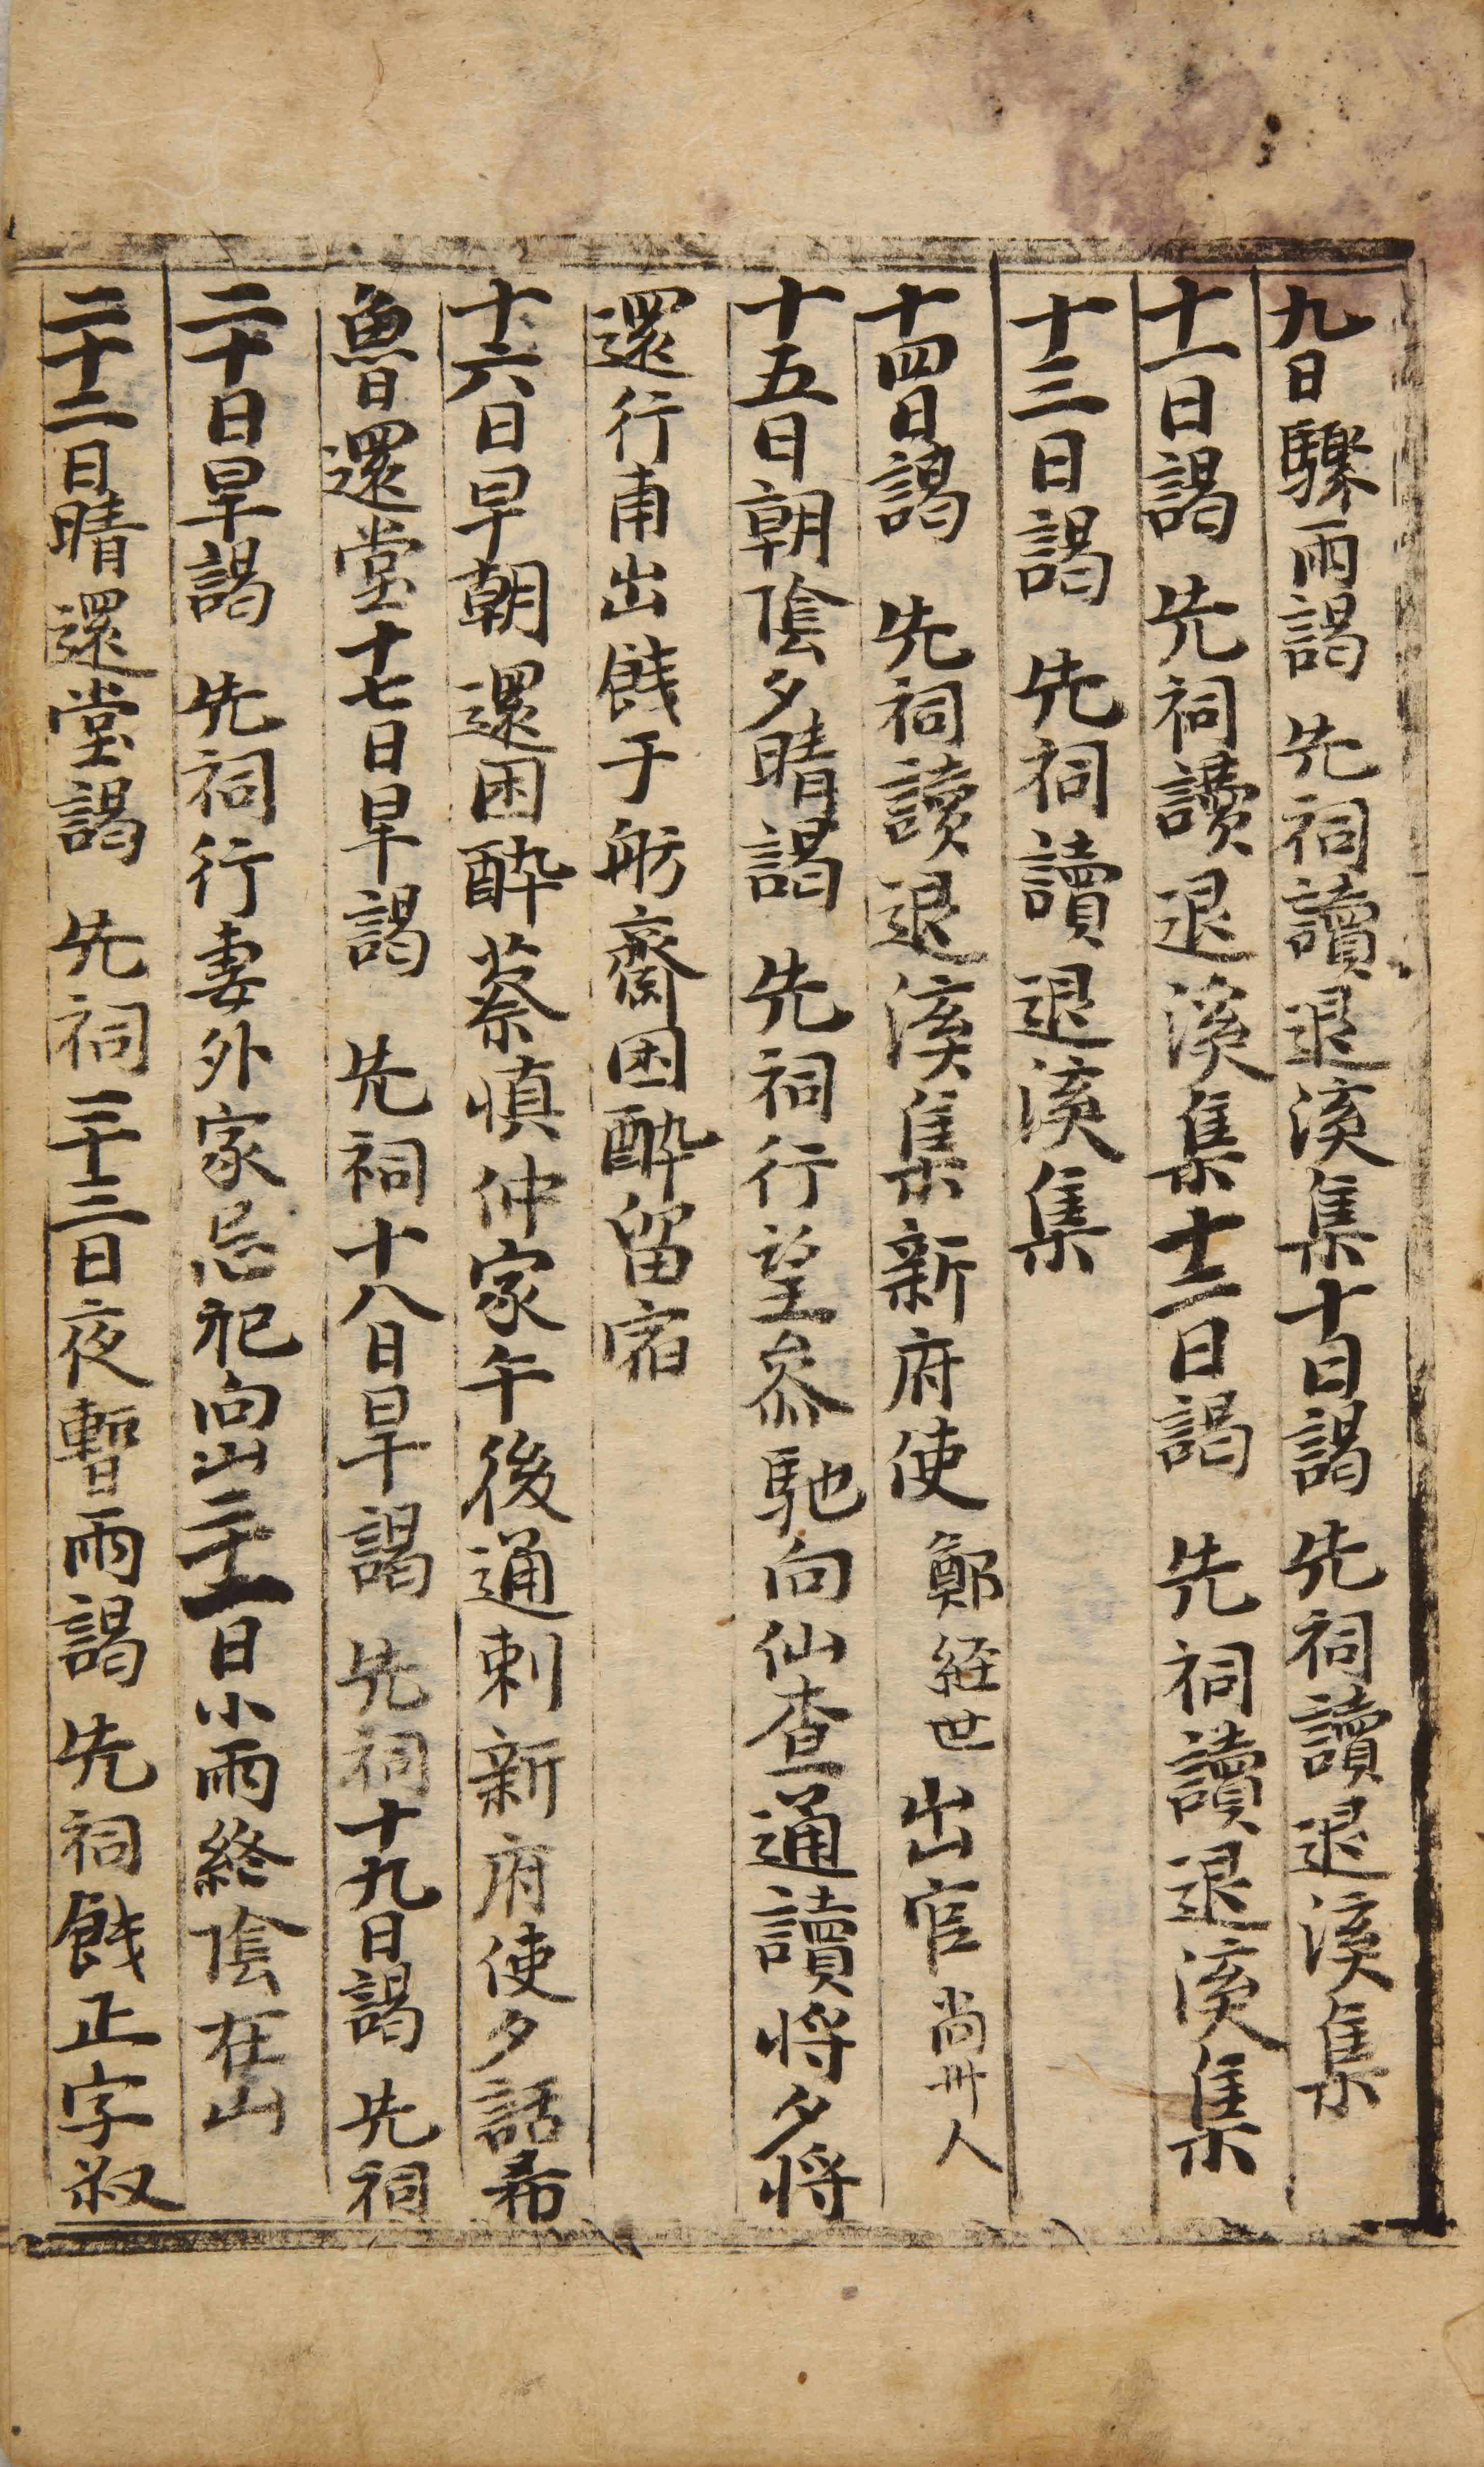 九日驟雨謁 先祠讀退溪集十日謁 先祠讀退溪集
十一日謁 先祠讀退溪集十二日謁 先祠讀退溪集
十三日謁 先祠讀退溪集
十四日謁 先祠讀退溪集新府使鄭経世出官尚卅人
十五日朝陰夕晴謁 先祠行望叅馳向仙查通讀将夕将
還行甫出餞于舫齋困酔留宿
十六日早朝還困酔蔡慎仲家午後通刺新府使夕話希
魯日還堂十七日早謁 先祠十八日早謁 先祠十九日謁 先祠
二十日早謁 先祠行妻外家忌祀向山二十一日小雨終陰在山
二十二日晴還堂謁 先祠二十三日夜暫雨謁 先祠餞正字叔